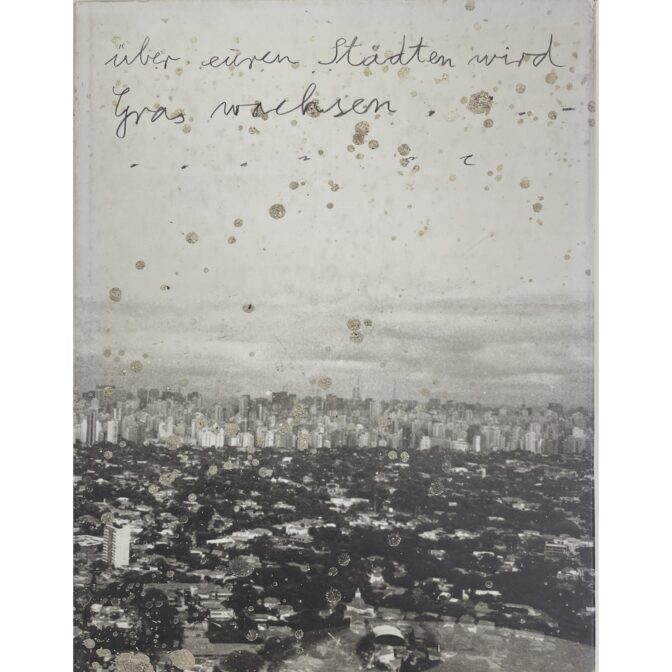 über euren Städten wird
Gras wachsen . . - -